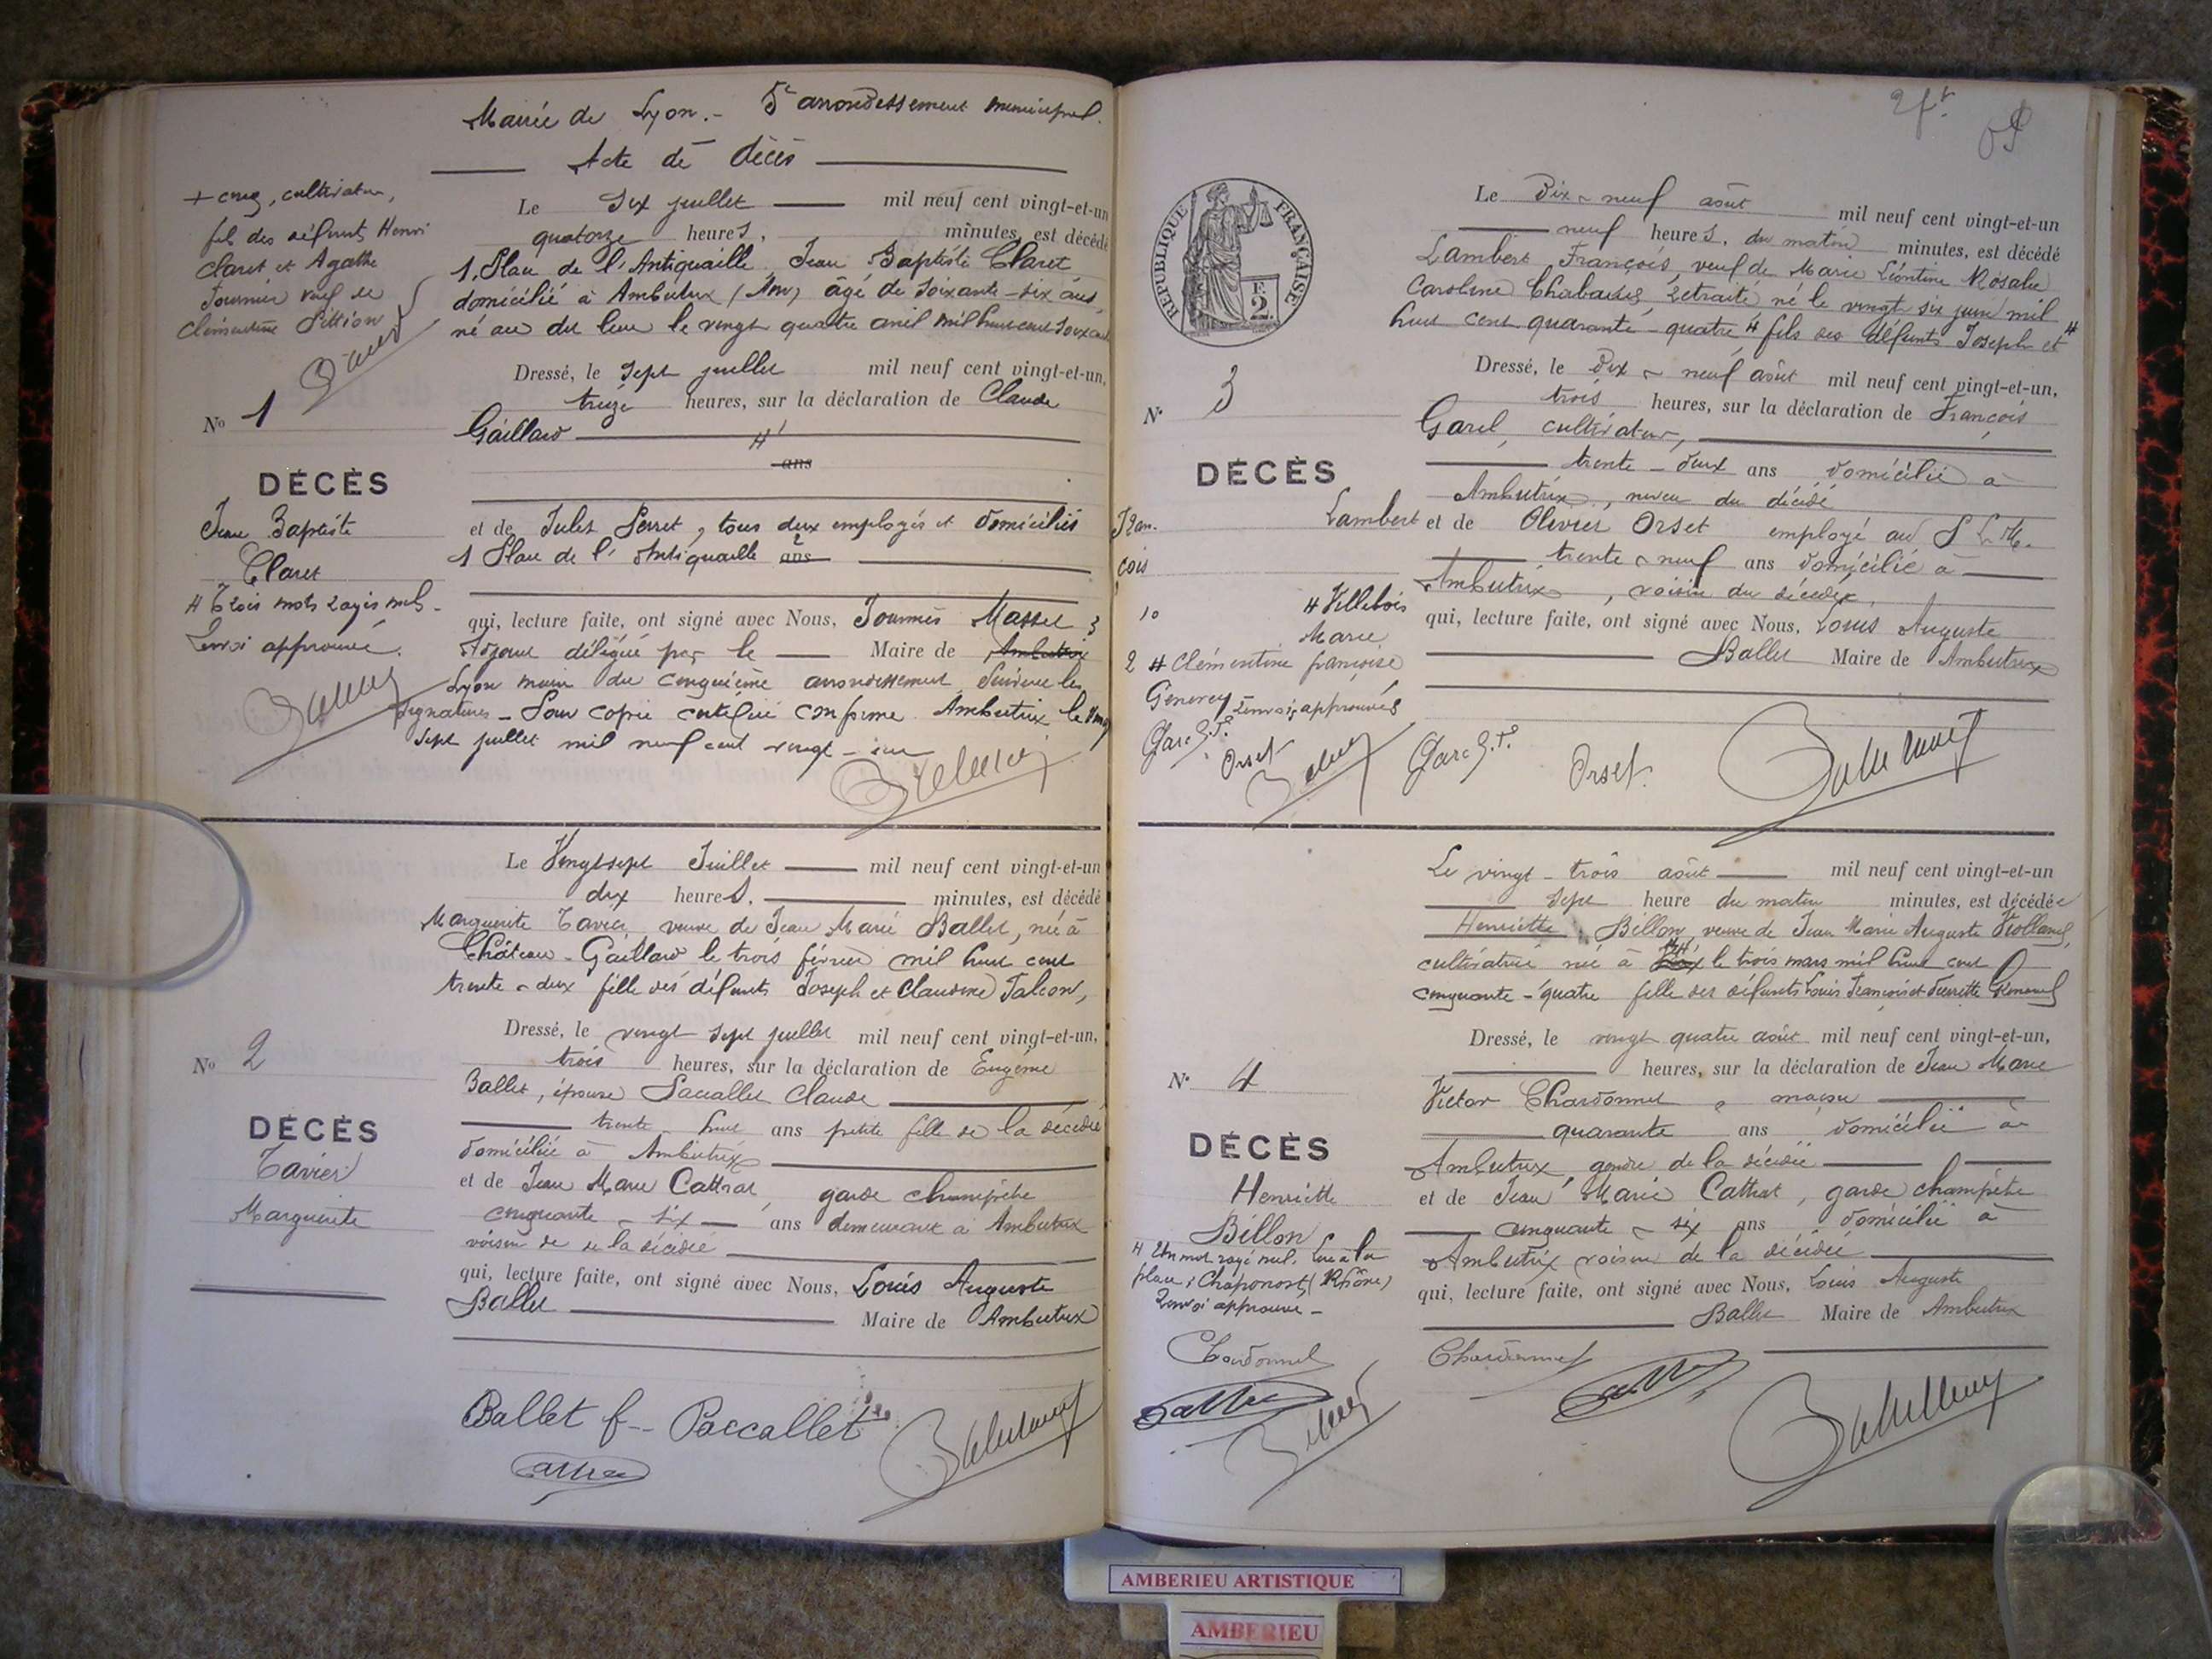 Mairie de Lyon. - 5e arrondissement municipal.
Acte de décès
+ cinq, cultivateur,
fils des défunts Henri
Claret et Agathe
Fournier veuf de
Clémentine Pittion
Le Six juillet mil neuf cent vingt-et-un
quatorze heures, minutes, est décédé
1, Place de l'Antiquaille, Jean Baptiste Claret
domicilié à Ambutrix (Ain) âgé de soixante-six ans
né au dit lieu le vingt quatre avril mil huit cent soixante
Dressé, le Sept juillet mil neuf cent vingt-et-un,
treize heures, sur la déclaration de Claude
No 1
Gaillard
ans
DÉCÈS
Jean Baptiste
Claret
et de Jules Perret, tous deux employés et domiciliés
1 Place de l'Antiquaille ans
# Trois mots rayés nuls.
Renvoi approuvé.
qui, lecture faite, ont signé avec Nous,
Adjoint délégué par le Maire de Ambutrix
Lyon mairie du cinquième arrondissement Suivent les
signatures - Pour copie certifiée conforme Ambutrix le vingt
sept juillet mil neuf cent vingt-un
Le Vingt sept Juillet mil neuf cent vingt-et-un
dix heures, minutes, est décédé
Marguerite Tavier veuve de Jean Marie Ballet, née à
Château-Gaillard le trois février mil huit cent
trente-deux fille des défunts Joseph et Claudine Falcon,
Dressé, le vingt sept juillet mil neuf cent vingt-et-un,
trois heures, sur la déclaration de Eugénie
No 2
Ballet, épouse Paccallet Claude
trente huit ans petite fille de la décédée
DÉCÈS
Tavier
Marguerite
domiciliée à Ambutrix
et de Jean Marie Cattrat, garde champêtre
cinquante-six ans demeurant à Ambutrix
voisin de de la décédée
qui, lecture faite, ont signé avec Nous, Louis Auguste
Ballet Maire de Ambutrix
Ballet f- Paccallet
2 ft
RÉPUBLIQUE FRANÇAISE
2 F.
Le Dix-neuf août mil neuf cent vingt-et-un
neuf heures, du matin minutes, est décédé
Lambert François, veuf de Marie Léontine Rosalie
Caroline retraité né le vingt six juin mil
huit cent quarante-quatre # fils des défunts Joseph et #
Dressé, le Dix-neuf août mil neuf cent vingt-et-un,
trois heures, sur la déclaration de François
N° 3
Garel, cultivateur,
trente-deux ans domicilié à
DÉCÈS
Lambert
Fran-
çois
Ambutrix, neveu du décédé
et de Olivier Orset employé au P.L.M.
trente-neuf ans domicilié à
Ambutrix, voisin du décédé,
qui, lecture faite, ont signé avec Nous, Louis Auguste
Ballet Maire de Ambutrix
1° # Villebois
Marie
2 # Clémentine françoise
Genevey 2 renvois approuvés
Orset
Orset
Le vingt-trois août mil neuf cent vingt-et-un
sept heure du matin minutes, est décédée
Henriette Billon, veuve de Jean Marie Auguste
cultivatrice née à # le trois mars mil huit cent
cinquante-quatre fille des défunts Louis François et
Dressé, le vingt quatre août mil neuf cent vingt-et-un,
heures, sur la déclaration de Jean Marie
N° 4
Victor Chardonnet, maçon
quarante ans domicilié à
DÉCÈS
Henriette
Billon
Ambutrix, gendre de la décédée
et de Jean Marie Cattrat, garde champêtre
cinquante-six ans domicilié à
Ambutrix voisin de la décédée
qui, lecture faite, ont signé avec Nous, Louis Auguste
Ballet Maire de Ambutrix
# Un mot rayé nul. Lire à la
place: Chaponost (Rhône)
Renvoi approuvé -
Chardonnet
Chardonnet
AMBERIEU ARTISTIQUE
AMBERIEU